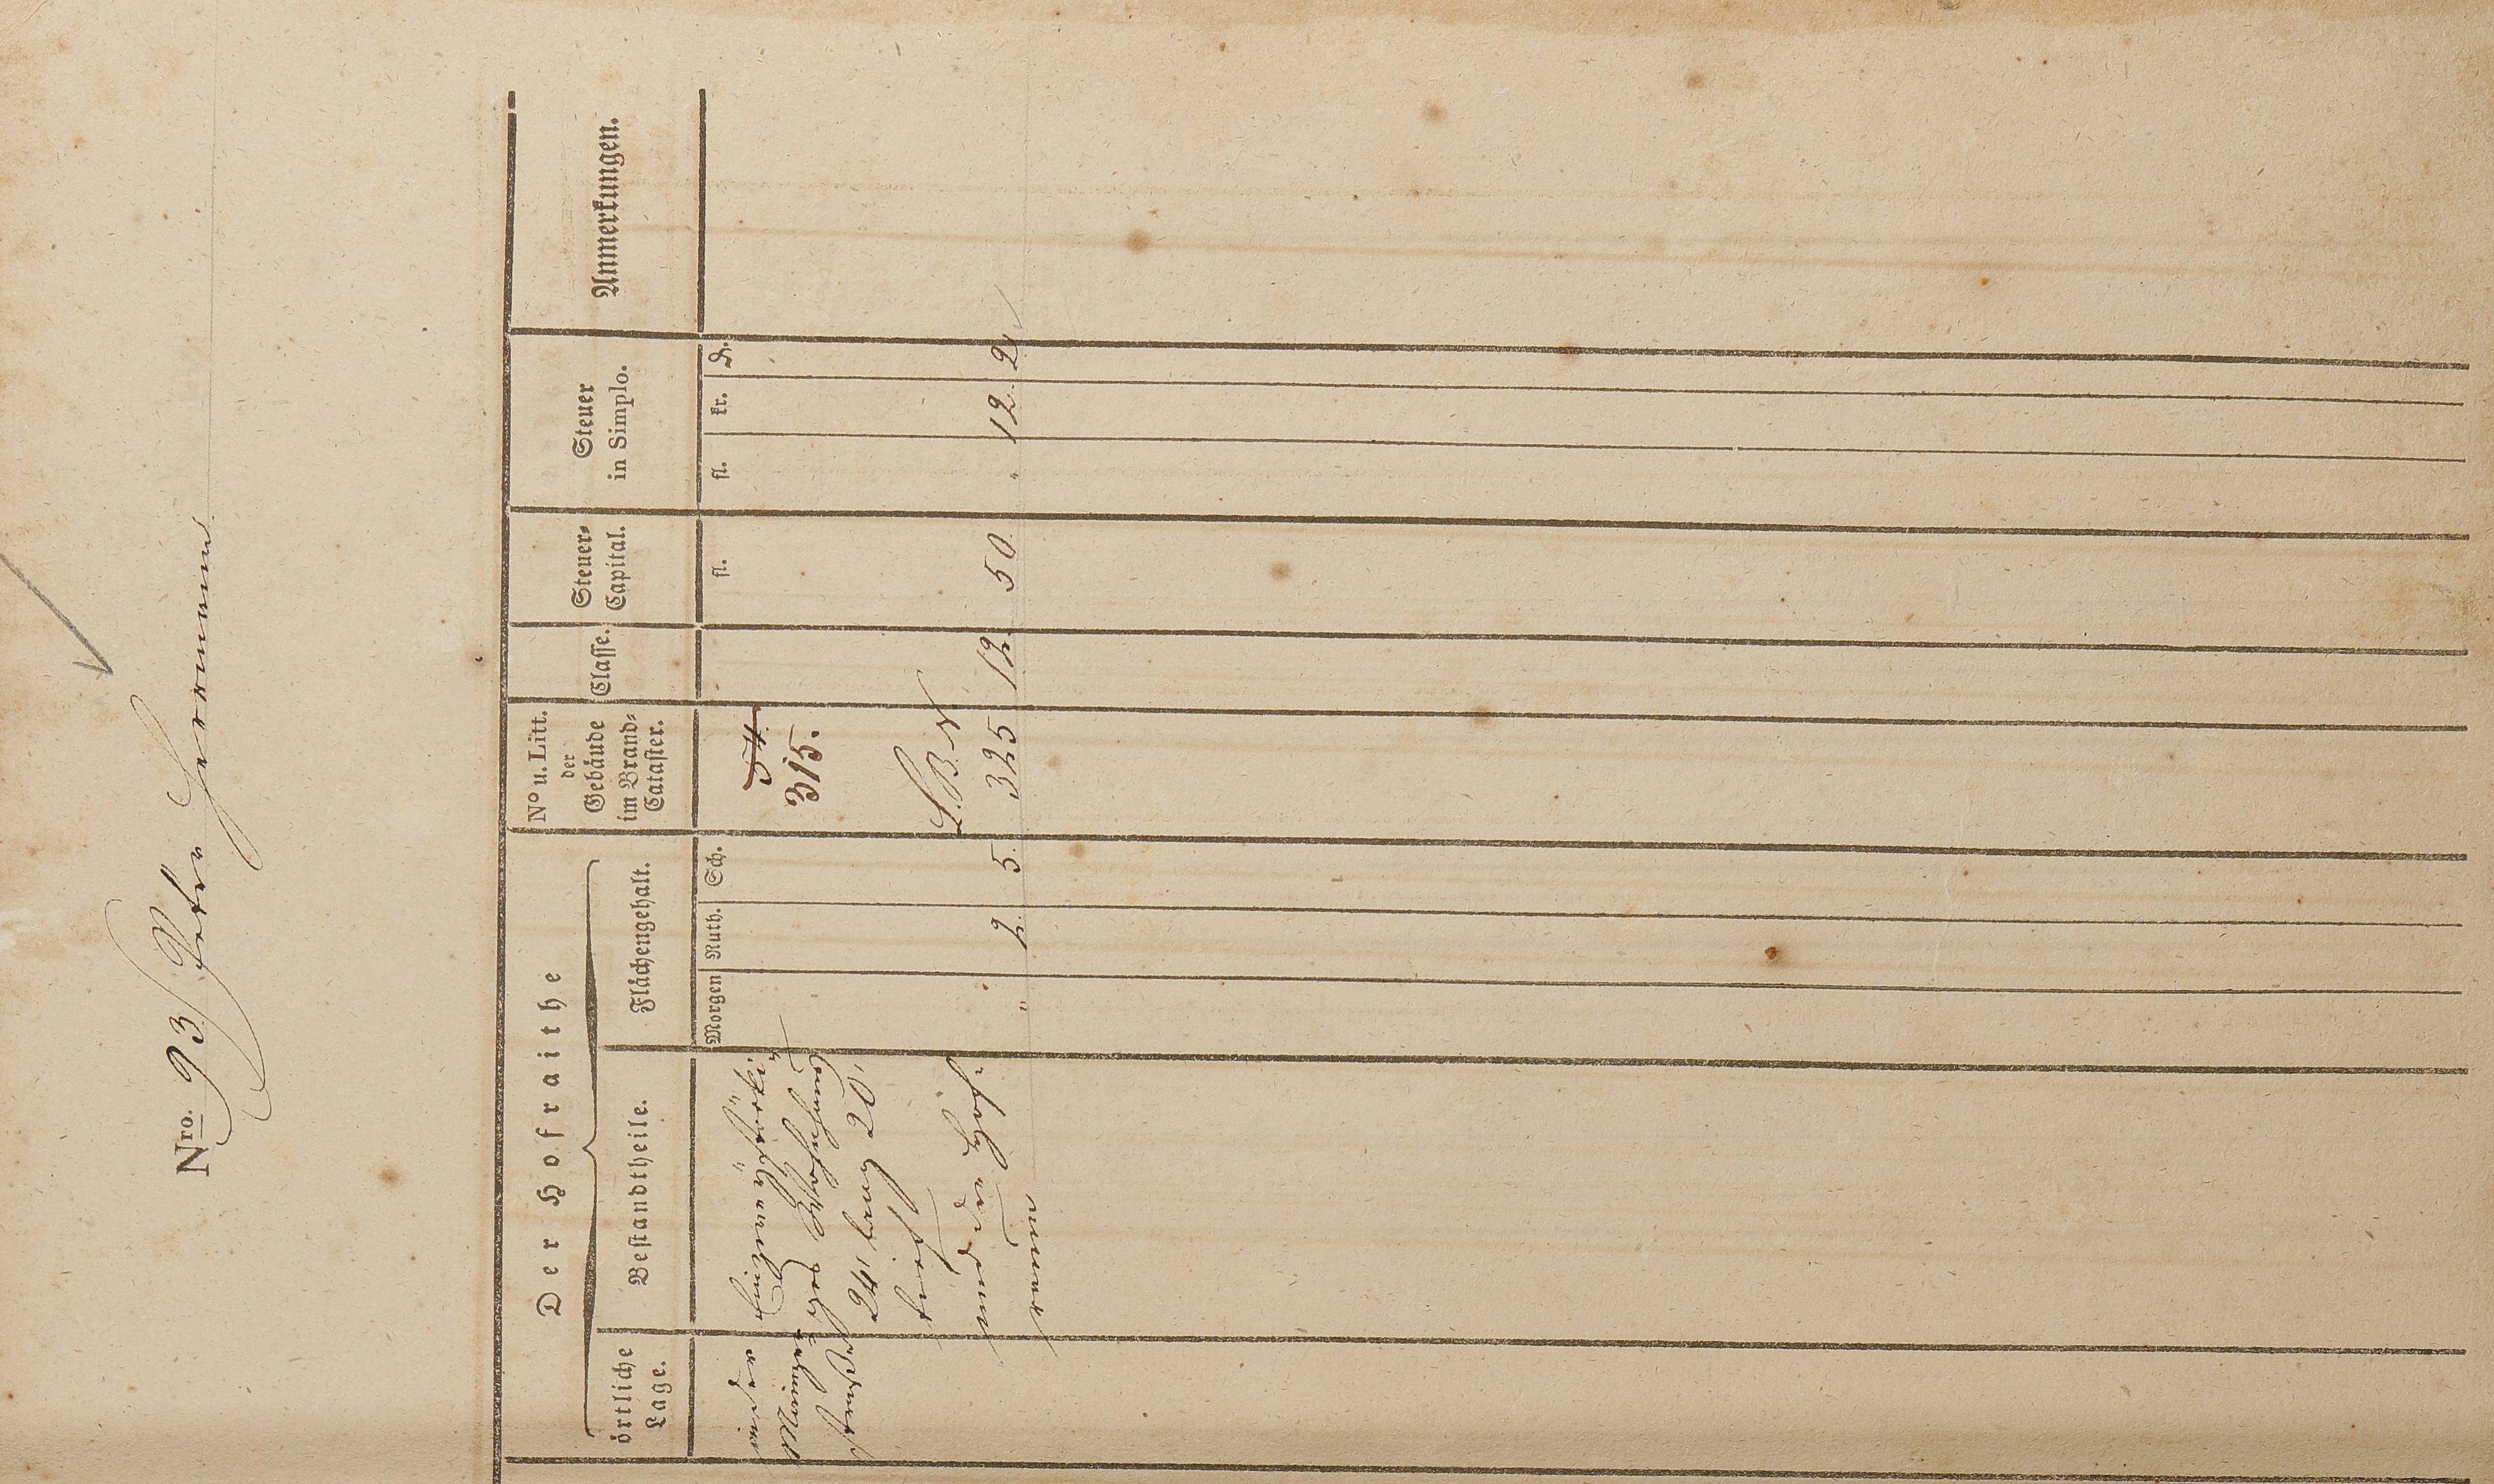 Nro. 93 Peter Herrmann
Der Hofraithe
örtliche
Lage.
Bestandtheile.
Flächengehalt.
Morgen
Ruth.
Sch.
No u. Litt.
der
Gebäude
im Brand-
Cataster.
Classe.
Steuer-
Capital.
fl.
Steuer
in Simplo.
fl.
kr.
₰.
Anmerkungen.
in der
Ein zweystöcki-
ges Wohnhaus
24' lang 20'
tief
und
54
315.
L. B. N
" 2. 5. 325 12. 50. " 12. 2